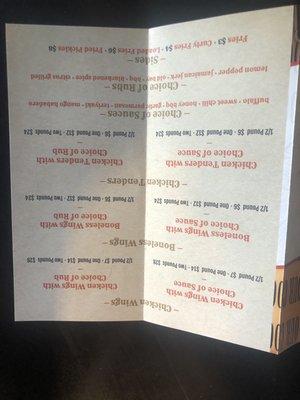 – Chicken Wings –
Chicken Wings with
Choice of Sauce
1/2 Pound - $7 One Pound - $14 Two Pound $26
Chicken Wings with
Choice of Rub
1/2 Pound - $7 One Pound - $14 Two Pound $26
– Boneless Wings –
Boneless Wings with
Choice of Sauce
1/2 Pound - $6 One - $12 Two Pounds $24
Boneless Wings with
Choice of Rub
1/2 Pound - $6 One - $12 Two Pounds $24
– Chicken Tenders –
Chicken Tenders with
Choice of Sauce
1/2 Pound - $6 One - $12 Two Pounds $24
Chicken Tenders with
Choice of Rub
1/2 Pound - $6 One - $12 Two Pounds $24
– Choice of Sauces –
buffalo · sweet chili · honey bbq · garlic parmesan · teriyaki · mango habanero
– Choice of Rubs –
lemon pepper · jamaican jerk · old bay · bbq · blackened · citrus grilled
– Sides –
Fries $3 · Curly Fries $4 · Loaded Fries $6 · Fried Pickles $8